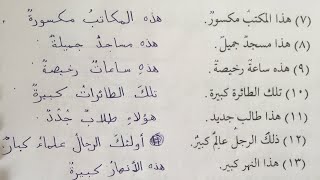 (٧) هذا المكتبُ مكسورٌ. هذه المكاتبُ مكسورةٌ
(٨) هذا مسجدٌ جميلٌ. هذه مساجدُ جميلةٌ
(٩) هذه ساعةٌ رخيصةٌ. هذه ساعاتٌ رخيصةٌ
(١٠) تلك الطائرة كبيرة. تلك الطائراتُ كبيرةٌ
(١١) هذا طالب جديد. هؤلاءِ طلابٌ جُدُدٌ
(١٢) ذلك الرجلُ عالِمٌ كبيرٌ. أولئك الرجالُ علماءُ كبارٌ
(١٣) هذا النهر كبير. هذه الأنهارُ كبيرةٌ